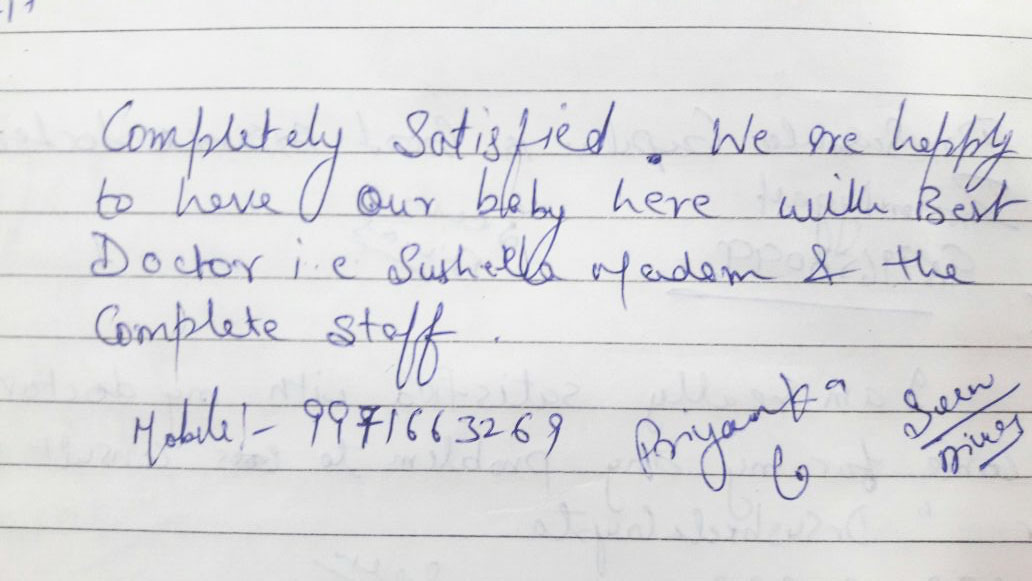 Completely Satisfied. We are heppy
to have our baby here with Best
Doctor i.e Susheela Madam & the
Complete staff.
Mobile:- 9971663269 Priyanka